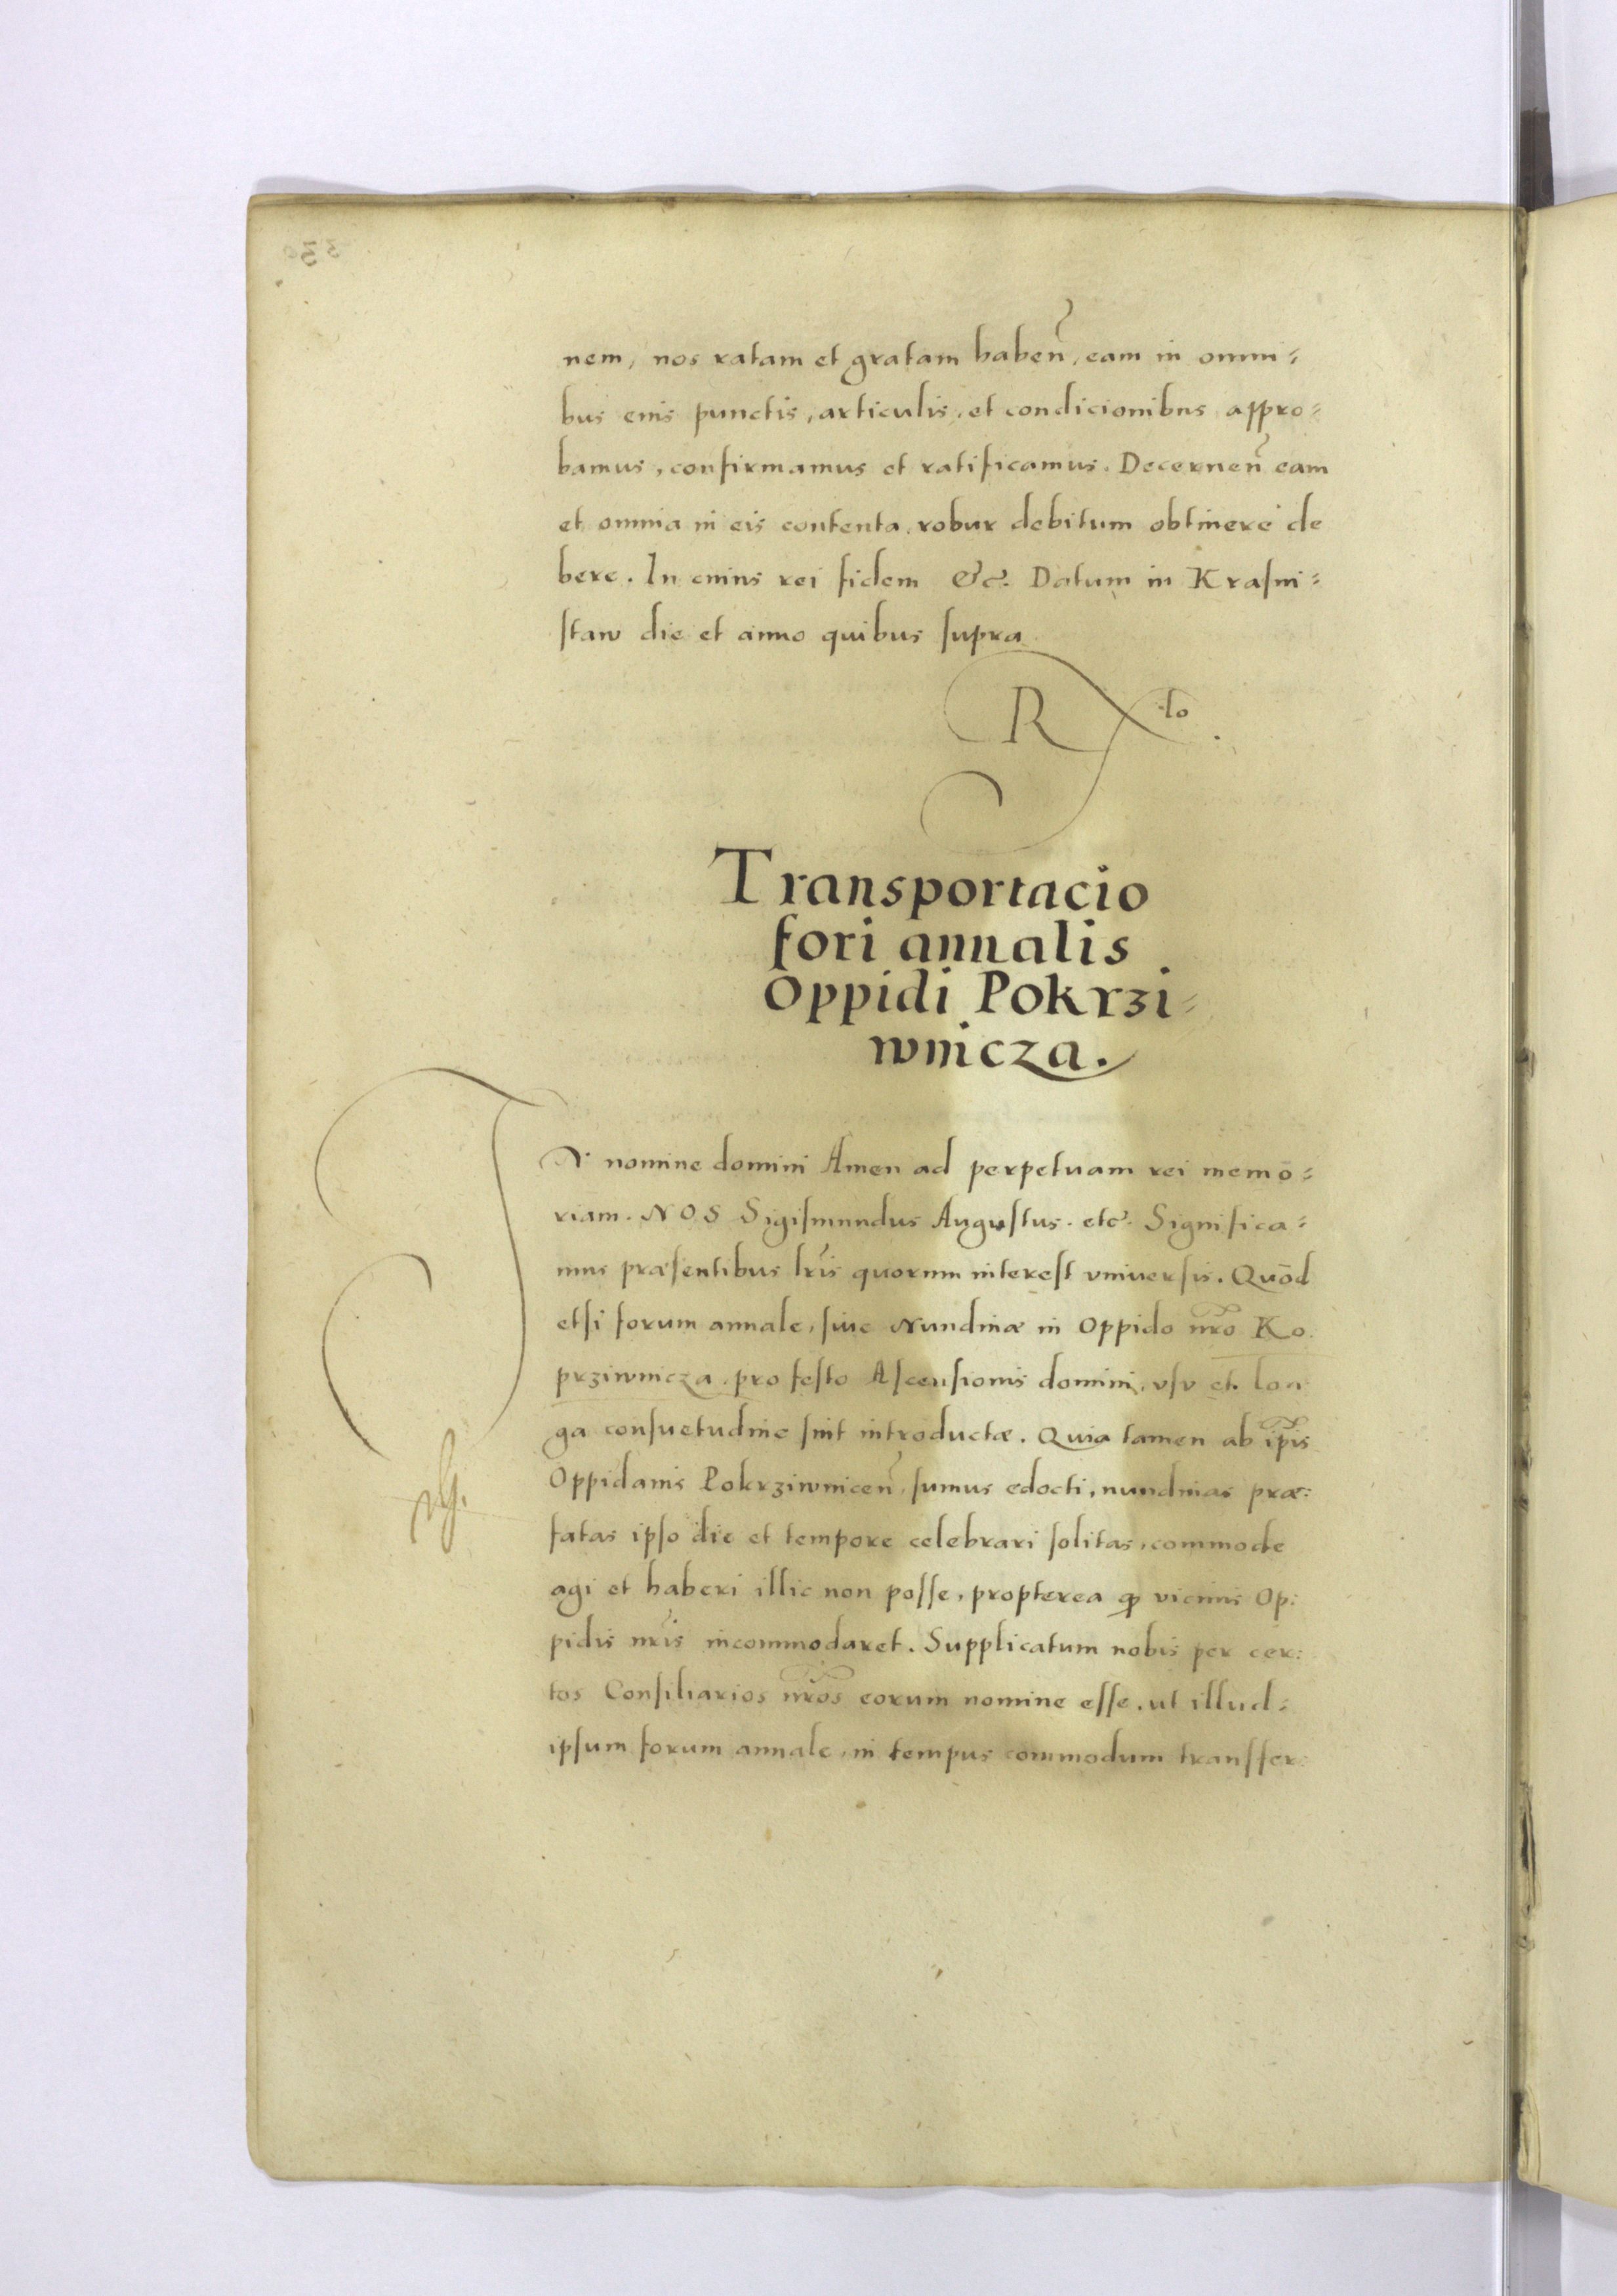 nem, nos ratam et gratam habeñ, eam in omni=
bus eius punctis, articulis, et condicionibus appro=
bamus, confirmamus et ratificamus. Decerneñ eam
et omnia in eis contenta, robur debitum obtinere de
bere. In cuius rei fidem &c. Datum in Krasni=
staw die et anno quibus supra
R to.
Transportacio
fori annalis
Oppidi Pokrzi=
wnicza.
IN nomine domini Amen ad perpetuam rei memō=
riam. NOS Sigismundus Augustus. etc. Significa=
mus præsentibus lr̃is quorum interest vniuersis. Quōd
etsi forum annale, siue Nundinæ in Oppido nr̃o Ko
prziwnicza, pro festo Ascensionis domini, vsu et lon
ga consuetudine sint introductæ. Quia tamen ab ip̃is
Oppidanis Pokrziwniceñ, sumus edocti, nundinas præ:
fatas ipso die et tempore celebrari solitas, commode
agi et haberi illic non posse, propterea ꝙ vicinis Op:
pidis nr̃is incommodaret. Supplicatum nobis per cer:
tos Consiliarios nr̃os eorum nomine esse, ut illud=
ipsum forum annale, in tempus commodum transfer: